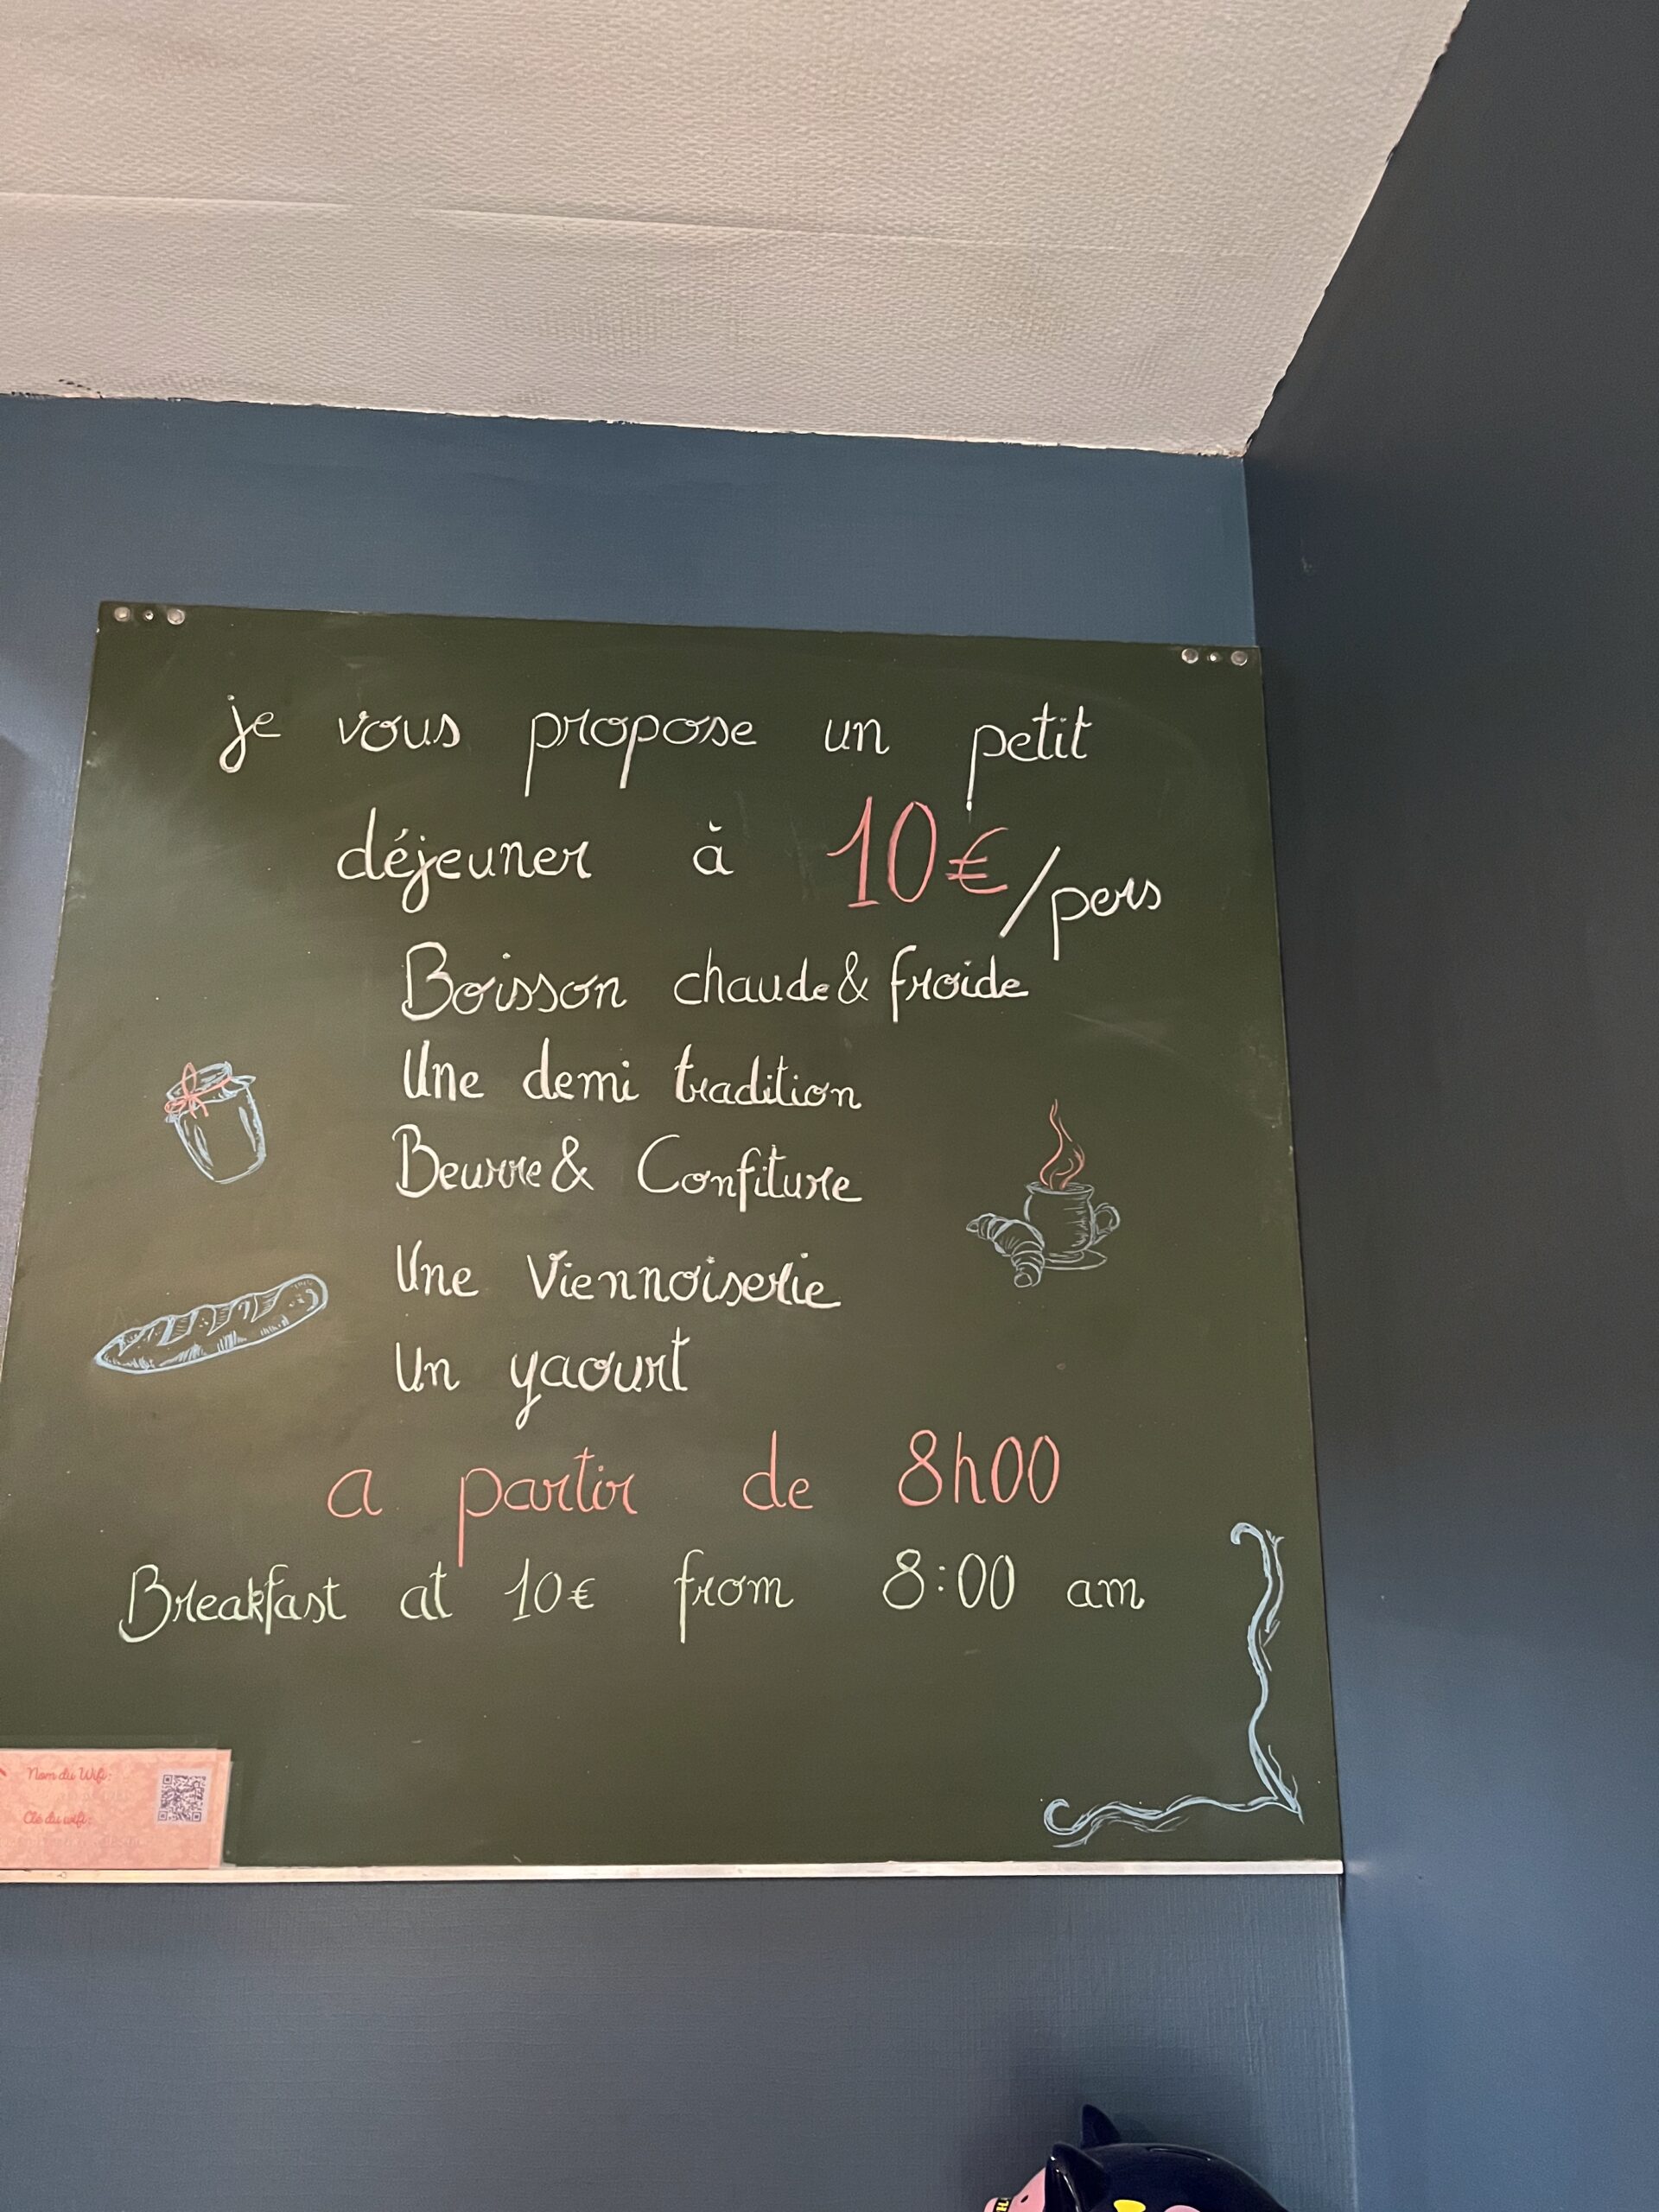 je vous propose un petit
déjeuner à 10€/pers
Boisson chaude & froide
Une demi tradition
Beurre & Confiture
Une Viennoiserie
Un yaourt
a partir de 8h00
Breakfast at 10€ from 8:00 am
Nom du Wifi:
Clé du wifi: